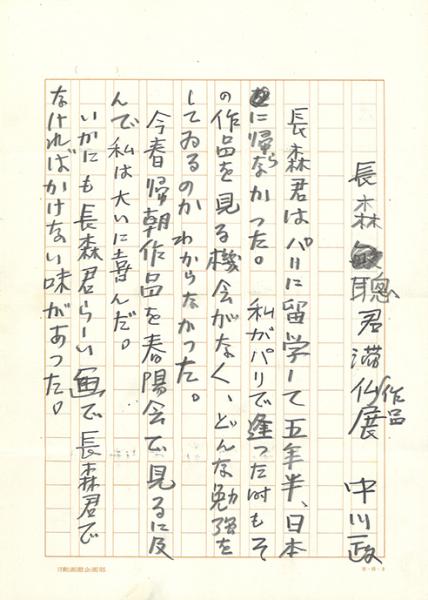 長森聰君滞仏作品展 中川一政
長森君はパリに留学して五年半、日本
に帰らなかつた。私がパリで逢つた時もそ
の作品を見る機会がなく、どんな勉強を
してゐるのかわからなかつた。
今春帰朝作品を春陽会で見るに及
んで私は大いに喜んだ。
いかにも長森君らしい画で長森君で
なければかけない味があつた。
日動画廊企画部